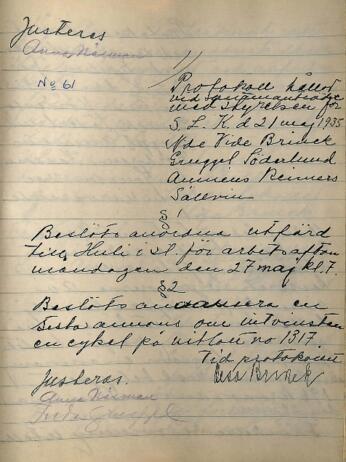 Justeras
Anna Nisman
No 61
Protokoll hållet
vid sammanträde
med styrelsen för
S. L. K. d 21 maj 1935
Nde Vide Brinck
Gruppel Söderlund
Amnens Renners
Sällvin
§ 1
Beslöts anordna utfärd
till Huli i st. för arbetsafton
måndagen den 27 maj kl. 7.
§ 2
Beslöts annonsera en
sista annons om intvinsten
en cykel på nitlott no 1317.
Vid protokollet
Brinck
Justeras.
Anna Nisman
Gruppel